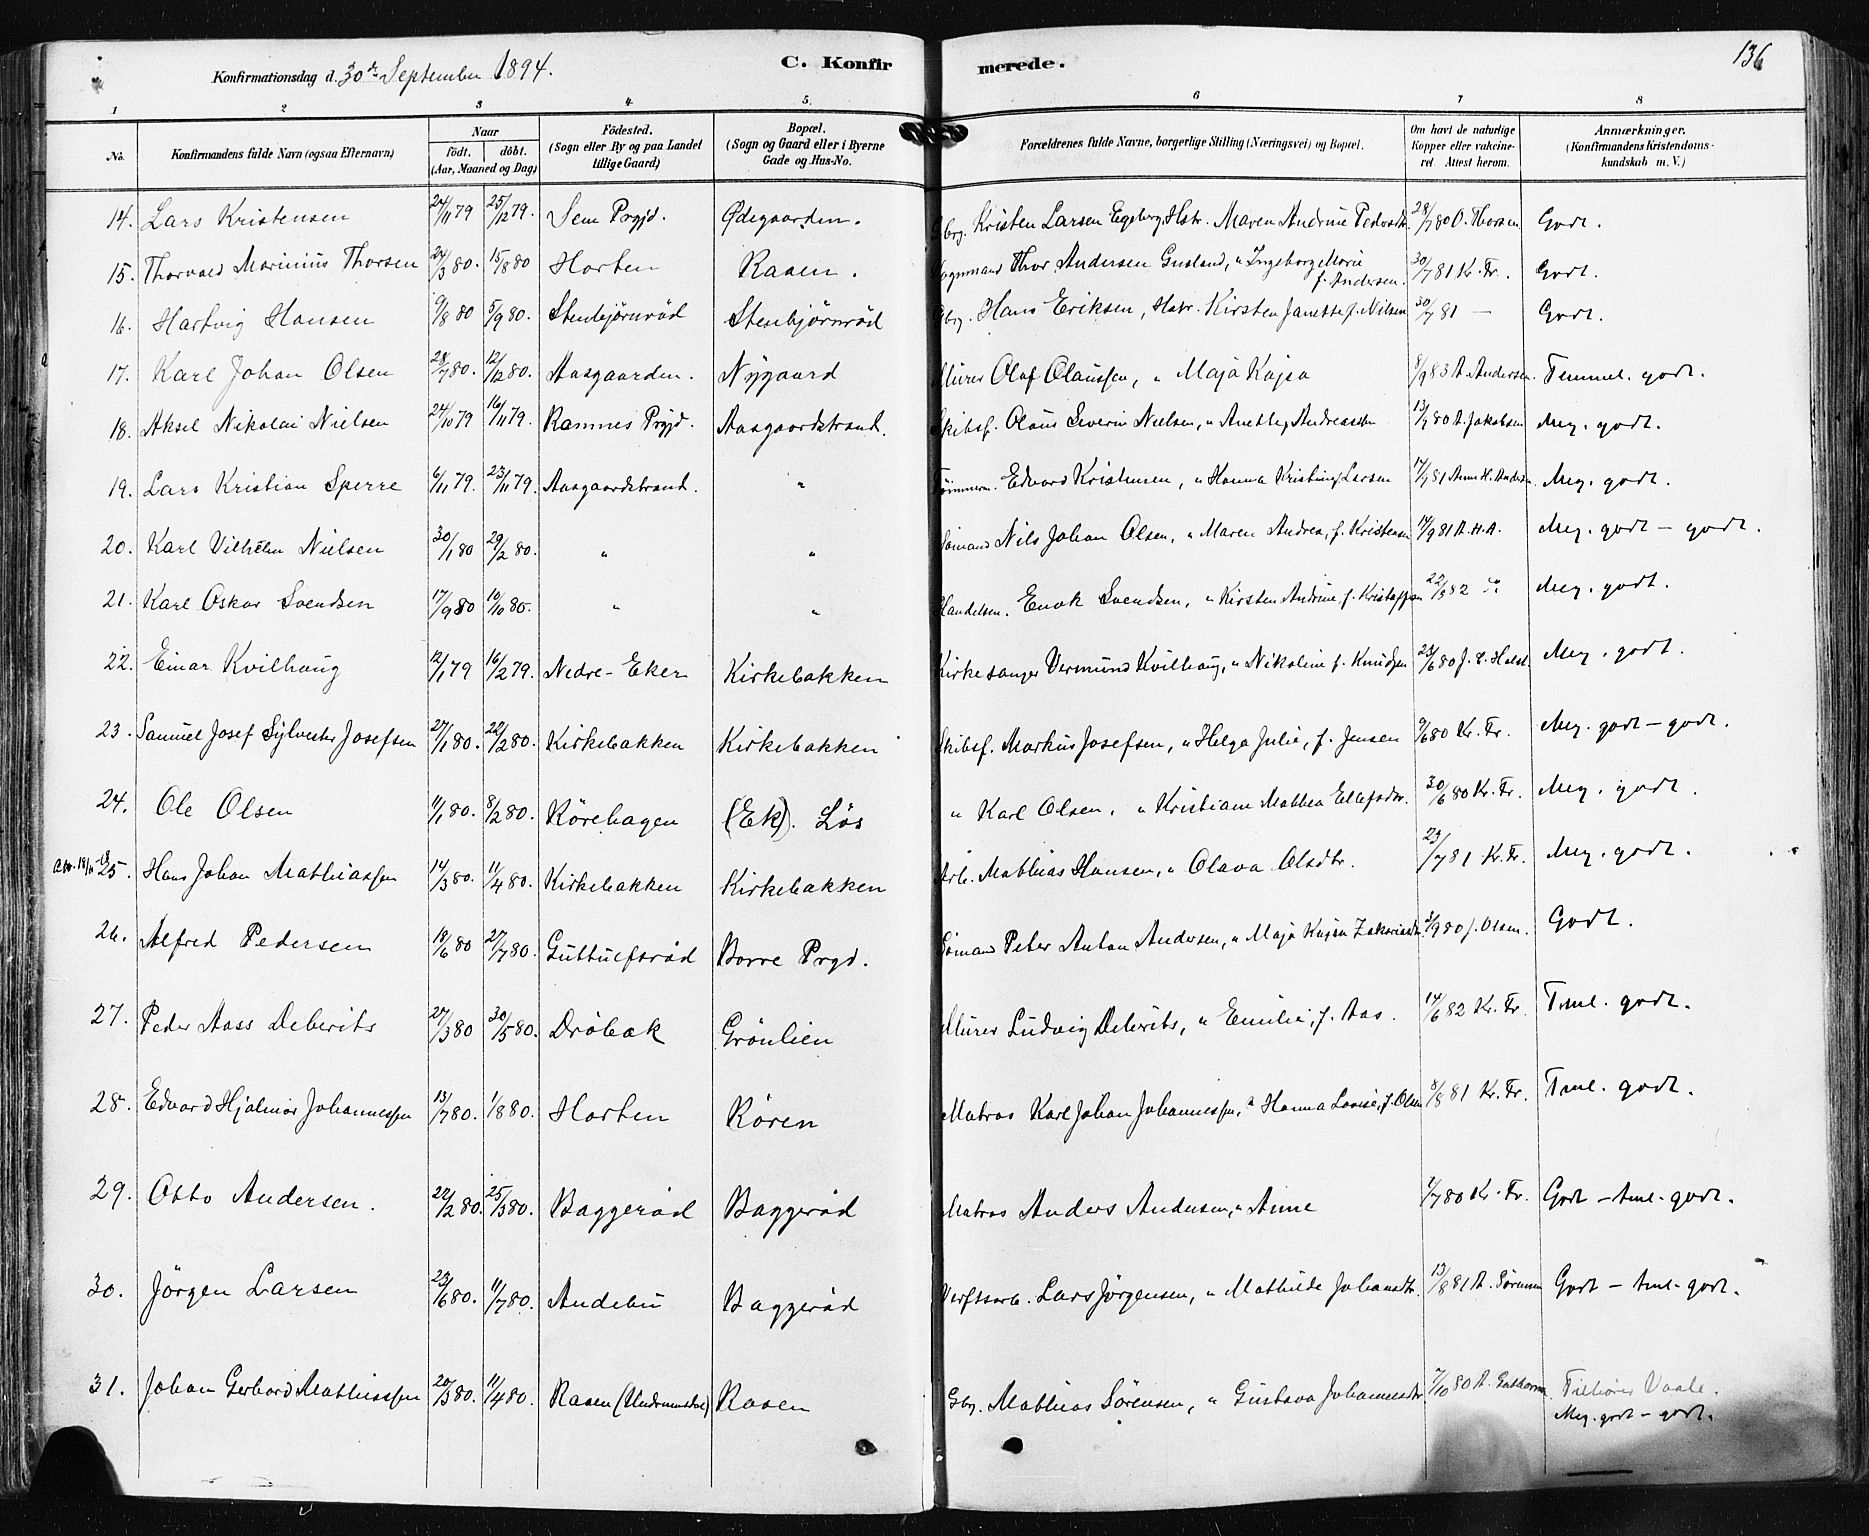 136
Konfirmationsdag d. 30te September 1894.
C. Konfirmerede.
1 2 3 4 5. 6 7 8
No. Konfirmandens fulde Navn (ogsaa Efternavn) Naar født, døbt. (Aar, Maaned og Dag) Fødested. (Sogn eller By og paa Landet tillige Gaard) Bopæl. (Sogn og Gaard eller i Byerne Gade og Hus-No. Forældrenes fulde Navne, borgerlige Stilling (Næringsvei) og Bopæl. Om havt de naturlige Kopper eller vakcineret. Attest herom. Anmærkninger. (Konfirmandens Kristendomskundskab m. V.)
14. Lars Kristensen 24/11 79 25/12 79. Sem Prgjd. Ødegaarden. Gbrg. Kristen Larsen Egeberg, Hstr. Maren Andrine Pedersdtr. 28/7 80 O. Thorsen Godt.
15. Thorvald Marinius Thorsen 24/3 80. 15/8 80 Horten Raaen. Thor Andersen Gusland, " Ingeborg Marie f. Andersen. 30/7 81 Kr. Fr. Godt.
16. Hartvig Hansen 9/8 80 5/9 80. Stenbjörnröd Stenbjörnröd Gbrg. Hans Eriksen, Hstr. Kirsten Janette f. Nilsen 30/7 81 — Godt.
17. Karl Johan Olsen 28/7 80. 12/12 80. Aasgaarden. Nygaard Murer Olaf Olaussen, " Maja Kajsa 8/9 83 A. Andersen. Temmel. godt.
18. Aksel Nikolai Nielsen 24/10 79 16/11 79. Ramnes Prgjd. Aasgaardstrand. Skibsf. Olaus Severin Nielsen, " Anette f. Andreassen 13/7 80 A. Jakobsen Meg. godt.
19. Lars Kristian Sperre 6/11 79. 23/11 79. Aasgaardstrand. " Tömmerm. Edvard Kristensen, " Hanna Kristine f. Larsen 17/7 81 Anne H. Anders. Meg. godt.
20. Karl Vilhelm Nielsen 30/1 80 29/2 80. " " Sömand Nils Johan Olsen, " Maren Andrea, f. Kristensen 17/9 81 A. H. A. Meg. godt – godt.
21. Karl Oskar Svendsen 17/9 80 10/10 80. " " Handelsm. Enok Svendsen, " Kirsten Andrine, f. Kristoffersen 22/5 82 Meg. godt.
22. Einar Kvilhaug 12/1 79 16/2 79. Nedre-Eker Kirkebakken Kirkesanger Vermund Kvilhaug, " Nikoline f. Knudsen 23/6 80 J. E. Holst. Meg. godt.
23. Samuel Josef Sylvester Josefsen 27/1 80. 22/2 80. Kirkebakken Kirkebakken Skibsf. Markus Josefsen, " Helga Julie, f. Jensen 9/6 80 Kr. Fr. Meg. godt – godt.
24. Ole Olsen 11/1 80. 8/2 80. Rörehagen (Ek). Lös " Karl Olsen, " Kristiane Mathea Ellefsdtr. 30/6 80 Kr. Fr. Meg. godt.
25. Hans Johan Mathiassen 14/3 80. 11/4 80. Kirkebakken Kirkebakken Arb. Mathias Hansen, " Olava Olsdtr. 23/7 81 Kr. Fr. Meg. godt.
26. Alfred Pedersen 18/6 80 27/7 80. Guttulfsröd Borre Prgd. Sömand Peter Anton Andersen, " Maja Kajsa Zakariasdtr. 3/9 80 J. Olsen. Godt.
27. Peder Aass Deberits 27/3 80 30/5 80. Dröbak Grönlien Murer Ludvig Deberits, " Emilie, f. Aas. 14/6 82 Kr. Fr. Tml. godt.
28. Edvard Hjalmar Johannessen 13/7 80. 1/8 80. Horten Rören Matros Karl Johan Johannessen, " Hanna Lovise, f. Olsen 8/8 81 Kr. Fr. Tml. godt.
29. Otto Andersen. 22/2 80. 25/3 80. Baggeröd Baggeröd Matros Anders Andersen, " Anne 1/7 80 Kr. Fr. Godt – tml. godt.
30. Jörgen Larsen 23/6 80. 11/7 80. Andebu Baggeröd Verftsarb. Lars Jörgensen, " Mathilde Johansdtr. 13/8 81 A. Sörensen Godt – tml. godt.
31. Johan Gerhard Mathiassen 20/3 80. 11/4 80. Raaen (Undrumsdal) Raaen Gbrg. Mathias Sörensen, " Gustava Johannesdtr. 7/10 80 A. Tilhörer Vaale.
Meg. godt – godt.